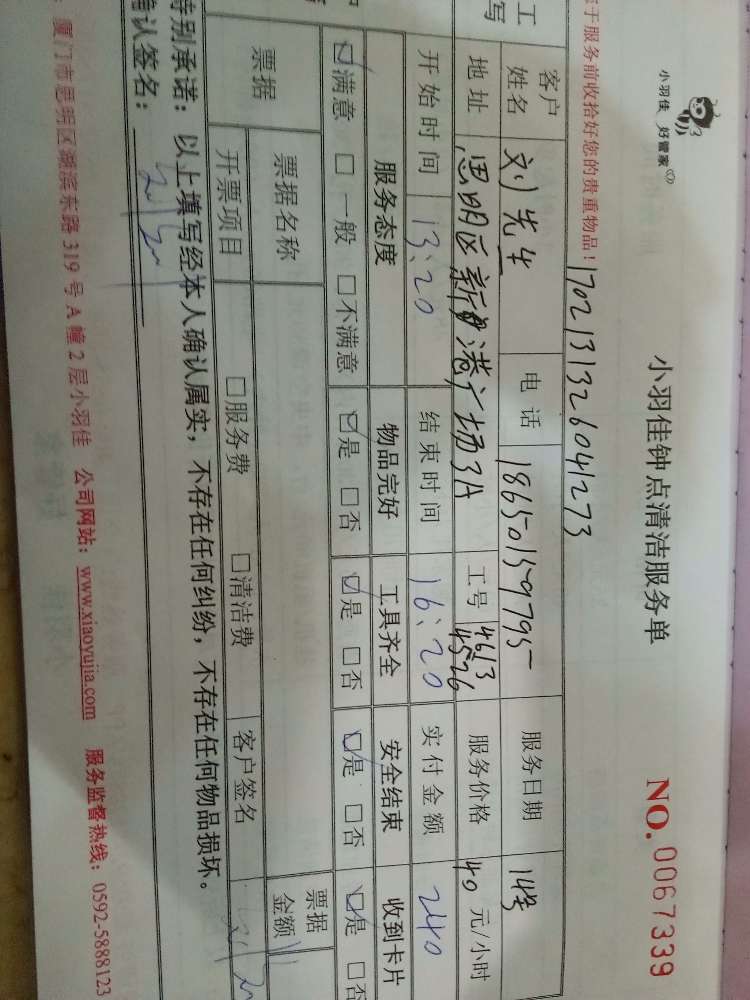 小羽佳 好管家
小羽佳钟点清洁服务单
NO. 0067339
于服务前收拾好您的贵重物品!
1702131326041273
客户姓名 刘先生 电话 18650159795 服务日期 14号
地址 思明区新港广场3A 工号 4613 4526 服务价格 40 元/小时
开始时间 13:20 结束时间 16:20 实付金额 240
服务态度 物品完好 工具齐全 安全结束 收到卡片
☑满意 □一般 □不满意 ☑是 □否 ☑是 □否 ☑是 □否 ☑是 □否
票据 票据名称 票据金额
开票项目 □服务费 □清洁费 客户签名
特别承诺:以上填写经本人确认属实,不存在任何纠纷,不存在任何物品损坏。
确认签名:
厦门市思明区湖滨东路319号A幢2层小羽佳 公司网站:www.xiaoyujia.com 服务监督热线:0592-5888123